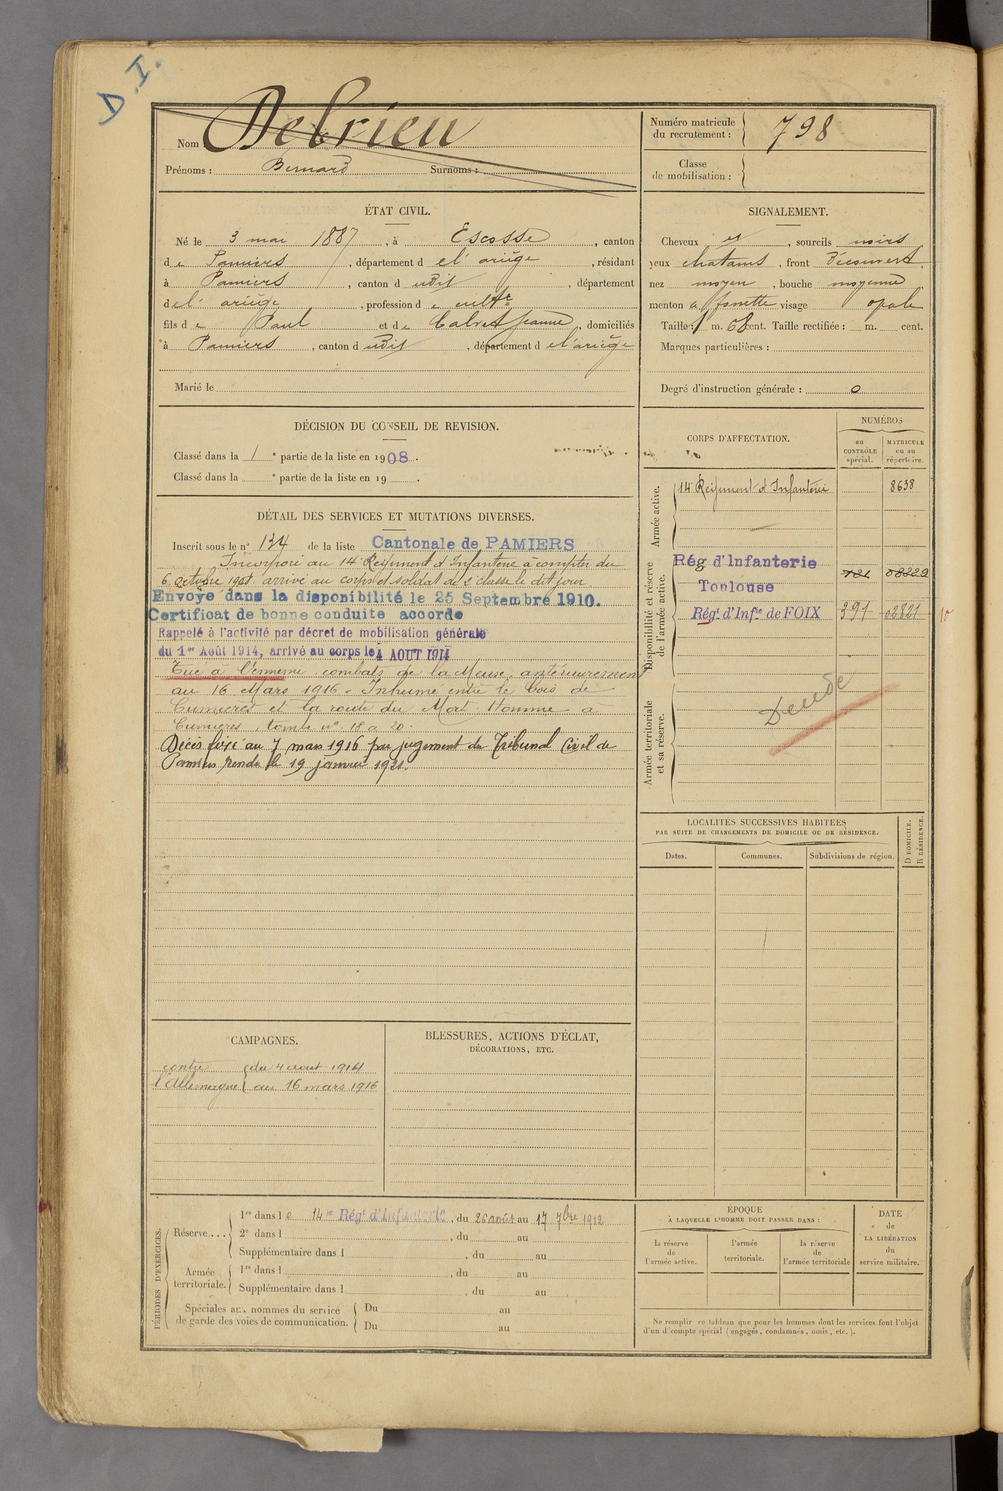 D. I.
Nom Delrieu
Prénoms : Bernard Surnoms :
Numéro matricule du recrutement : 798
Classe de mobilisation :
ÉTAT CIVIL.
Né le 3 mai 1887, à Escosse, canton
de Pamiers, département de l'ariège, résidant
à Pamiers, canton d udit, département
de l'ariège, profession de cultr
fils de Paul et de Calvet Jeanne, domiciliés
à Pamiers, canton d udit, département de l'ariège
Marié le
SIGNALEMENT.
Cheveux et, sourcils noirs
yeux chatains, front Découvert,
nez moyen, bouche moyenne
menton a fossette visage opale
Taille : 1 m. 68 cent. Taille rectifiée : m. cent.
Marques particulières :
Degré d'instruction générale : 0
DÉCISION DU CONSEIL DE REVISION.
Classé dans la 1 e partie de la liste en 1908.
Classé dans la e partie de la liste en 19 .
DÉTAIL DES SERVICES ET MUTATIONS DIVERSES.
Inscrit sous le n° 134 de la liste Cantonale de PAMIERS
Incorporé au 14 Régiment d'Infanterie à compter du
6 octobre 1908. arrivé au corps et soldat de 2 classe le dit jour.
Envoyé dans la disponibilité le 25 Septembre 1910.
Certificat de bonne conduite accordé
Rappelé à l'activité par décret de mobilisation générale
du 1er Août 1914, arrivé au corps le 4 AOUT 1914
Tué à l'ennemi combats de la Meuse antérieurement
au 16 Mars 1916. Inhumé entre le bois de
Cumières et la route du Mort Homme a
Cumières, tombe n° 18 a 20.
Décès fixé au 7 mars 1916 par jugement du Tribunal Civil de
Pamiers rendu le 19 janvier 1921.
CORPS D'AFFECTATION.
NUMÉROS
au CONTRÔLE spécial.
MATRICULE ou au répertoire.
Armée active.
14 Régiment d'Infanterie 8638
Disponibilité et réserve de l'armée active.
Rég d'Infanterie
Toulouse
Régt d'Infie de FOIX 391 02821
Armée territoriale et sa réserve.
Décédé
LOCALITÉS SUCCESSIVES HABITÉES
PAR SUITE DE CHANGEMENTS DE DOMICILE OU DE RÉSIDENCE.
Dates.
Communes.
Subdivisions de région.
D DOMICILE.
R RÉSIDENCE.
CAMPAGNES.
contre du 4 aout 1914
l'Allemagne au 16 mars 1916
BLESSURES, ACTIONS D'ÉCLAT,
DÉCORATIONS, ETC.
PÉRIODES D'EXERCICES.
Réserve...
1re dans le 14me Régt d'Infanterie, du 26 août au 17 7bre 1912
2e dans l , du au
Supplémentaire dans l , du au
Armée territoriale.
1re dans l , du au
Supplémentaire dans l , du au
Spéciales aux hommes du service de garde des voies de communication.
Du au
Du au
ÉPOQUE
À LAQUELLE L'HOMME DOIT PASSER DANS :
la réserve de l'armée active.
l'armée territoriale.
la réserve de l'armée territoriale
DATE de LA LIBÉRATION du service militaire.
Ne remplir ce tableau que pour les hommes dont les services font l'objet
d'un décompte spécial (engagés, condamnés, omis, etc.).